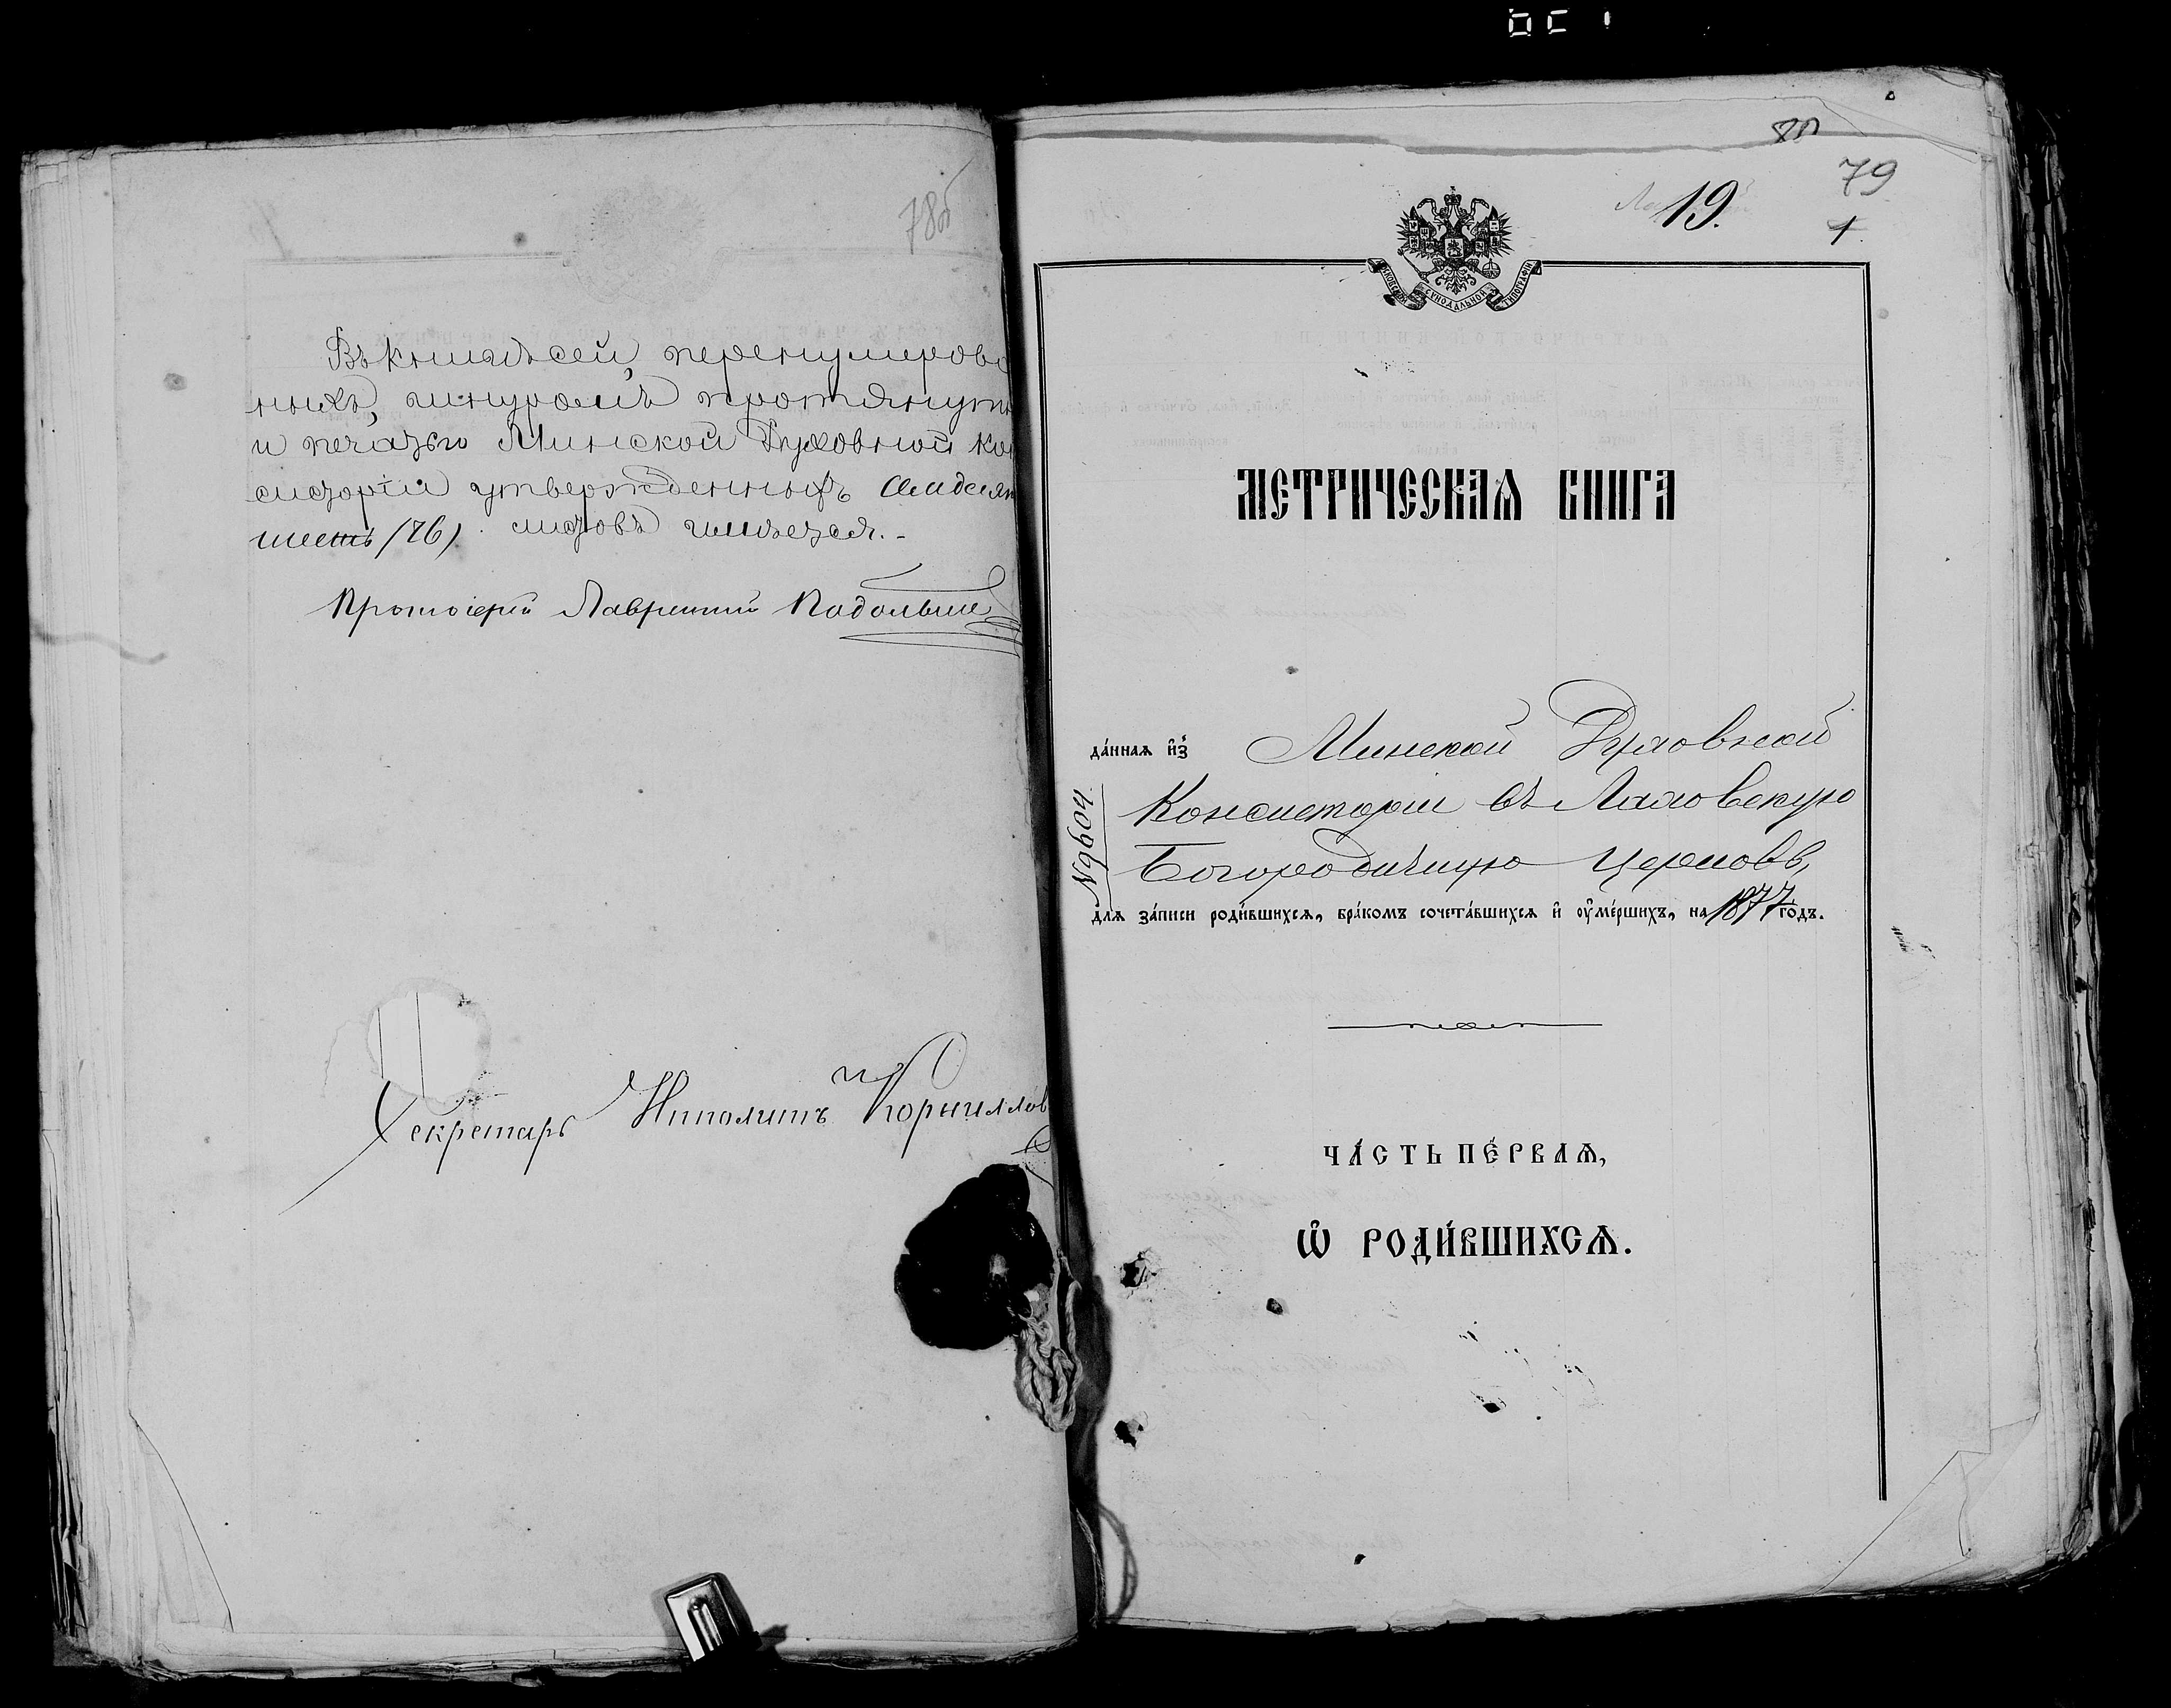 78об
Въ книгѣ сей, перенумерова
ныхъ, шнуромъ протянуты
и печатью Минской Духовной Кон
систоріи утвержденныхъ Семдесят
шесть (76). листовъ имѣется.-
Протоіерей Лаврентій Подольск
Секретарь Ипполитъ Корнилов
80
79
19.
1.
МОСКОВСКОЙ СУНОДАЛЬНОЙ ТИПОГРАФІИ
МЕТРИЧЕСКАѦ КНИГА
да́ннаѧ и҆з̾ Минской Духовной
Консисторіи въ Ляховскую
Богородичную церковь,
№9604
длѧ за́писи роди́вшихсѧ, бра́комъ сочета́вшихсѧ и҆ ᲂу҆ме́ршихъ, на 1877 го́дъ.
ЧА́СТЬ ПЕ́РВАѦ,
Ѽ РОДИ́ВШИХСѦ.